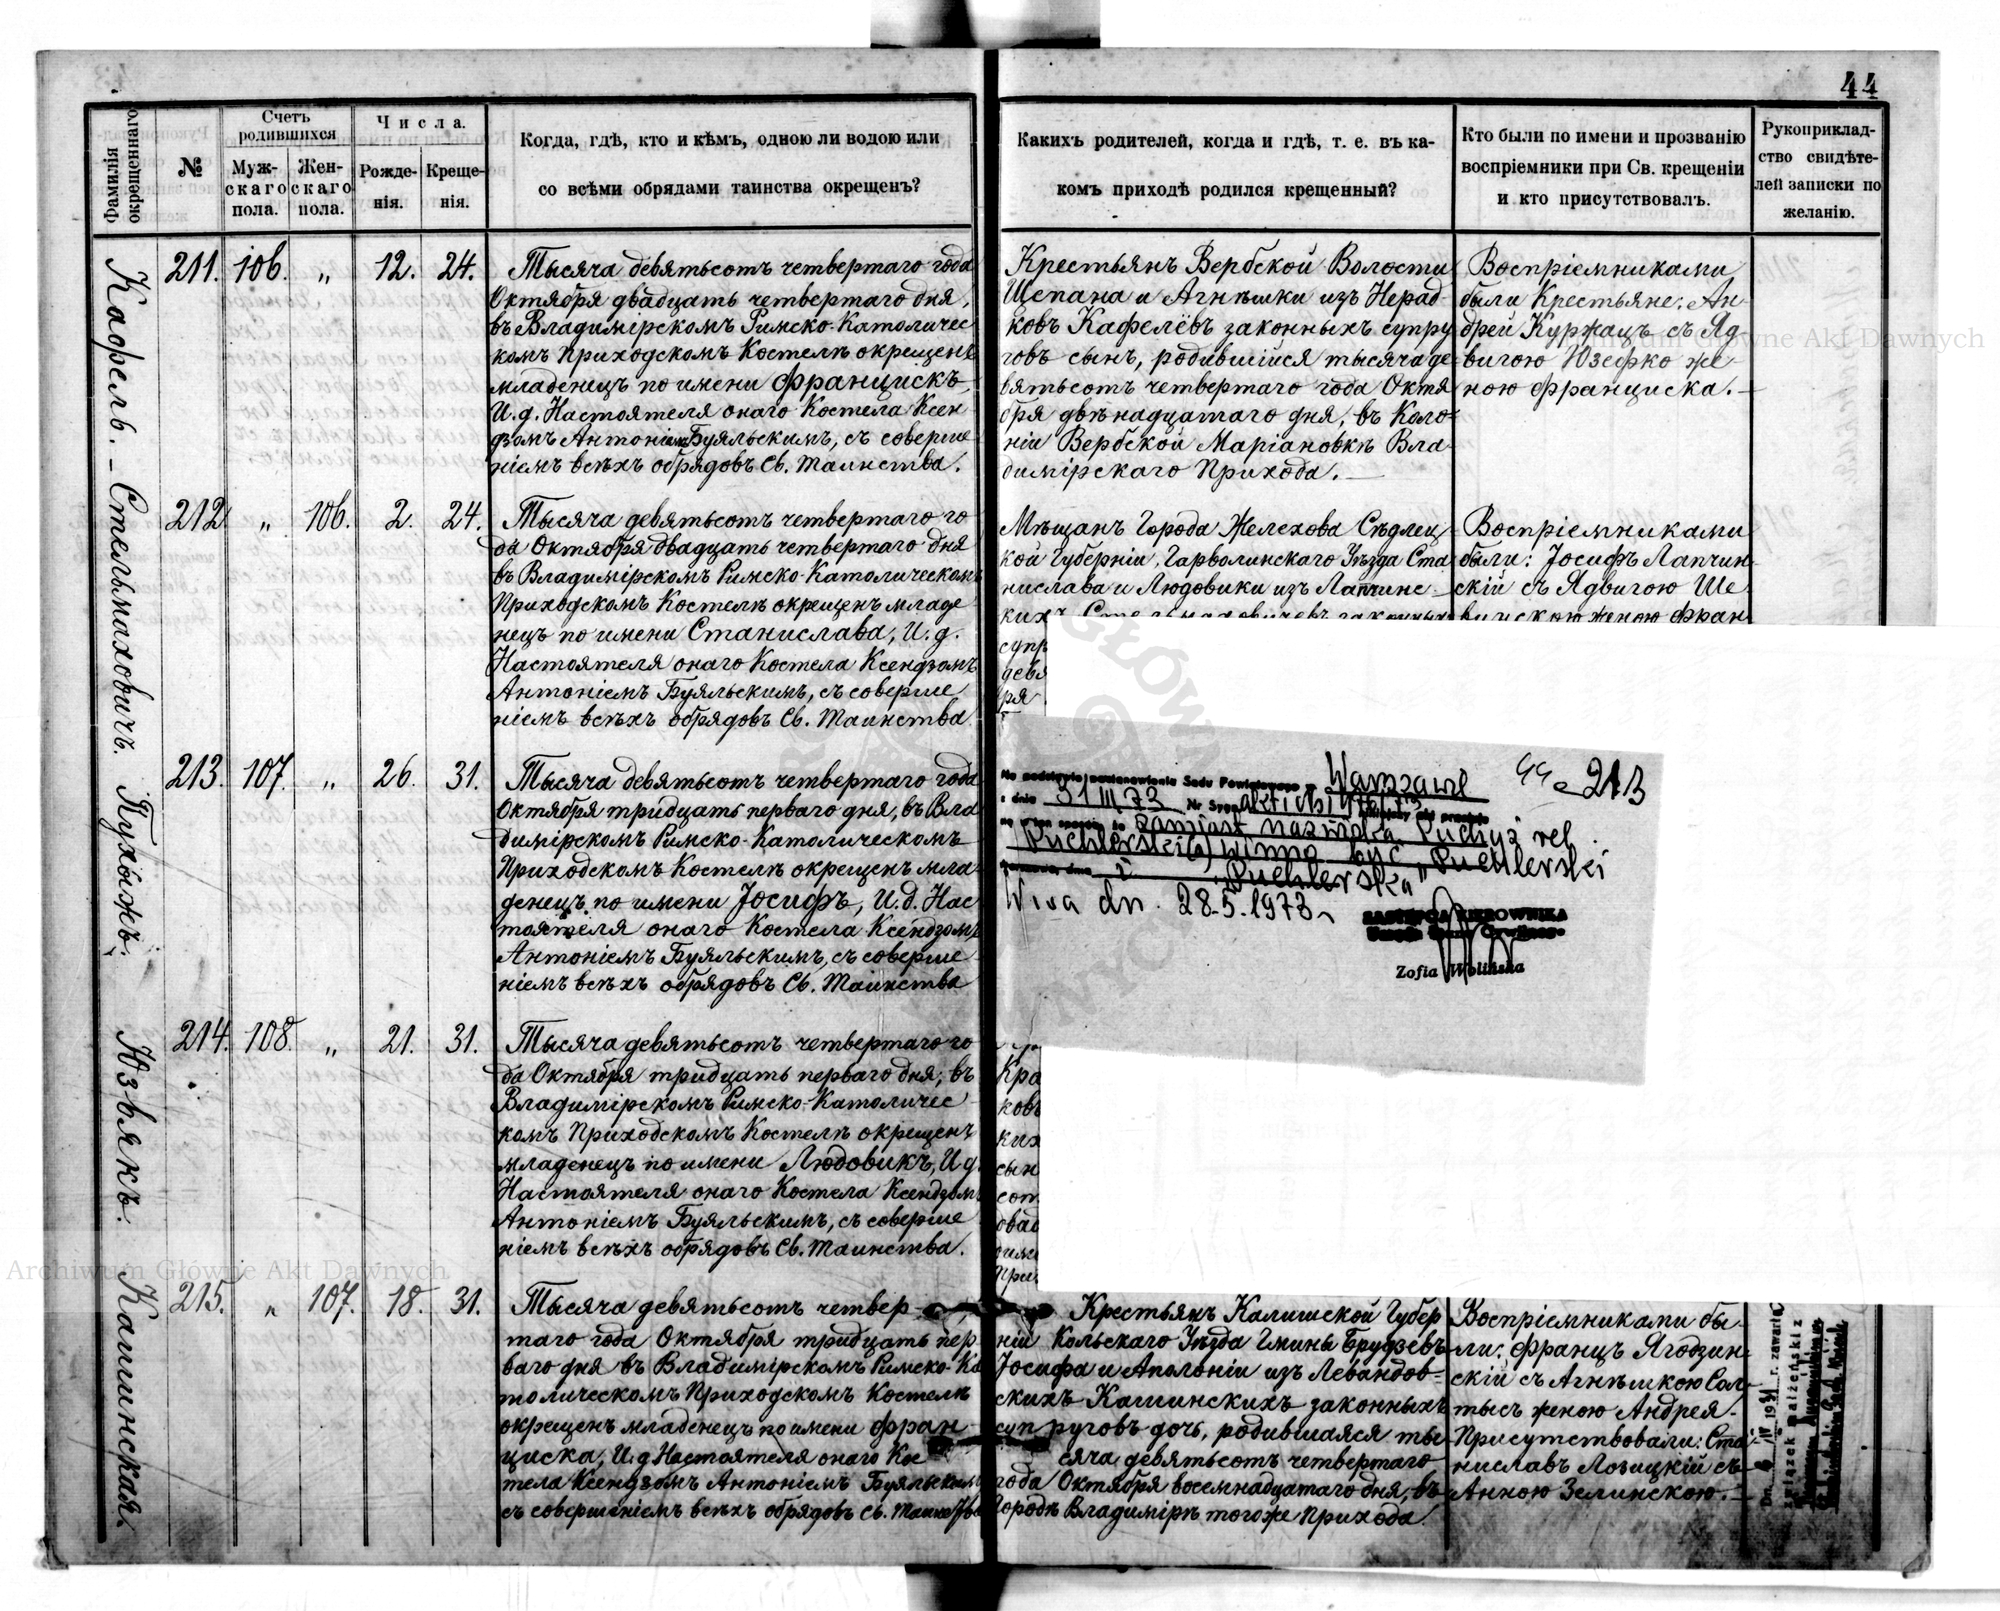 44
Фамилія окрещеннаго.
№
Счетъ родившихся
Муж-скаго пола.
Жен-скаго пола.
Числа.
Рожде-нія.
Креще-нія.
Когда, гдѣ, кто и кѣмъ, одною ли водою или
со всѣми обрядами таинства окрещенъ?
Какихъ родителей, когда и гдѣ, т. е. въ ка-
комъ приходѣ родился крещенный?
Кто были по имени и прозванію
воспріемники при Св. крещеніи
и кто присутствовалъ.
Рукоприклад-
ство свидѣте-
лей записки по
желанію.
Кафель.
211. 106. „ 12. 24.
Тысяча девятьсотъ четвертаго года
Октября двадцать четвертаго дня,
въ Владимірскомъ Римско-Католичес
комъ Приходскомъ Костелѣ окрещенъ
младенецъ по имени Францискъ,
И. д. Настоятеля онаго Костела Ксен
дзомъ Антоніемъ Буяльскимъ, съ соверше
ніемъ всѣхъ обрядовъ Св. Таинства.
Крестьянъ Вербской Волости
Щепана и Агнѣшки изъ Нерад-
ковъ Кафелёвъ законныхъ супру
говъ сынъ, родившійся тысяча де
вятьсотъ четвертаго года Октя
бря двѣнадцатаго дня, въ Коло-
ніи Вербской Маріановкѣ Вла-
димірскаго Прихода.
Воспріемниками
были Крестьяне: Ан-
дрей Куржацъ съ Яд-
вигою Юзефко же-
ною Франциска.
Стельмаховичъ.
212. „ 106. 2. 24.
Тысяча девятьсотъ четвертаго го
да Октября двадцать четвертаго дня
въ Владимірскомъ Римско-Католическомъ
Приходскомъ Костелѣ окрещенъ младе
нецъ по имени Станислава, И. д.
Настоятеля онаго Костела Ксендзомъ
Антоніемъ Буяльскимъ, съ соверше
ніемъ всѣхъ обрядовъ Св. Таинства
Мѣщанъ Города Желехова Сѣдлец
кой Губерніи, Гарволинскаго Уѣзда Ста
нислава и Людовики изъ Лапчинс-
кихъ Стельмаховичевъ законныхъ
супр
девя
ря
Воспріемниками
были: Іосифъ Лапчин
скій съ Ядвигою Ше
женою Фран
Пухыжъ.
213. 107. „ 26. 31.
Тысяча девятьсотъ четвертаго года
Октября тридцать перваго дня, въ Вла
димірскомъ Римско-Католическомъ
Приходскомъ Костелѣ окрещенъ мла-
денецъ по имени Іосифъ, И. д. Нас
тоятеля онаго Костела Ксендзомъ
Антоніемъ Буяльскимъ, съ соверше
ніемъ всѣхъ обрядовъ Св. Таинства
Na podstawie postanowienia Sądu Powiatowego w Warszawie
z dnia 31 III 73 Nr Sygn.
zamiast nazwiska "Puchyż vel
Puchlerski(a) winno być "Puchlerski
i "Puchlerska"
W-wa dn. 28.5.1973
213
ZASTĘPCA KIEROWNIKA
Urzędu Stanu Cywilnego
Zofia Wolińska
Язвякъ.
214. 108. „ 21. 31.
Тысяча девятьсотъ четвертаго го
да Октября тридцать перваго дня, въ
Владимірскомъ Римско-Католичес
комъ Приходскомъ Костелѣ окрещенъ
младенецъ по имени Людовикъ, И д.
Настоятеля онаго Костела Ксендзом
Антоніемъ Буяльскимъ, съ соверше
ніемъ всѣхъ обрядовъ Св. Таинства.
Кра
ковъ
ких
сын
сот
овад
Прих
Кашинская.
215. „ 107. 18. 31.
Тысяча девятьсотъ четвер-
таго года Октября тридцать пер
ваго дня въ Владимірскомъ Римско-Ка
толическомъ Приходскомъ Костелѣ
окрещенъ младенецъ по имени Фран-
циска, И. д Настоятеля онаго Кос
тела Ксендзомъ Антоніемъ Буяльским
съ совершеніемъ всѣхъ обрядовъ Св. Таинства
Крестьянъ Калишской Губер
ніи Кольскаго Уѣзда Гмины Брудзевъ
Іосифа и Аполоніи изъ Левандов-
скихъ Кашинскихъ законныхъ
супруговъ дочь, родившаяся ты-
сяча девятьсотъ четвертаго
года Октября восемнадцатаго дня, въ
Городѣ Владимірѣ тогоже Прихода.
Воспріемниками бы-
ли: Францъ Ягодзин-
скій съ Агнѣшкою Сол-
тысъ женою Андрея.
Присутствовали: Ста-
ниславъ Лозицкій съ
Анною Зелинскою.
zawarto
związek małżeński z
Archiwum Główne Akt Dawnych
Archiwum Główne Akt Dawnych